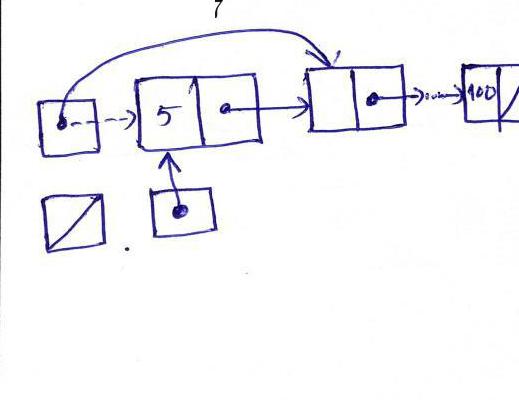 7
5
100